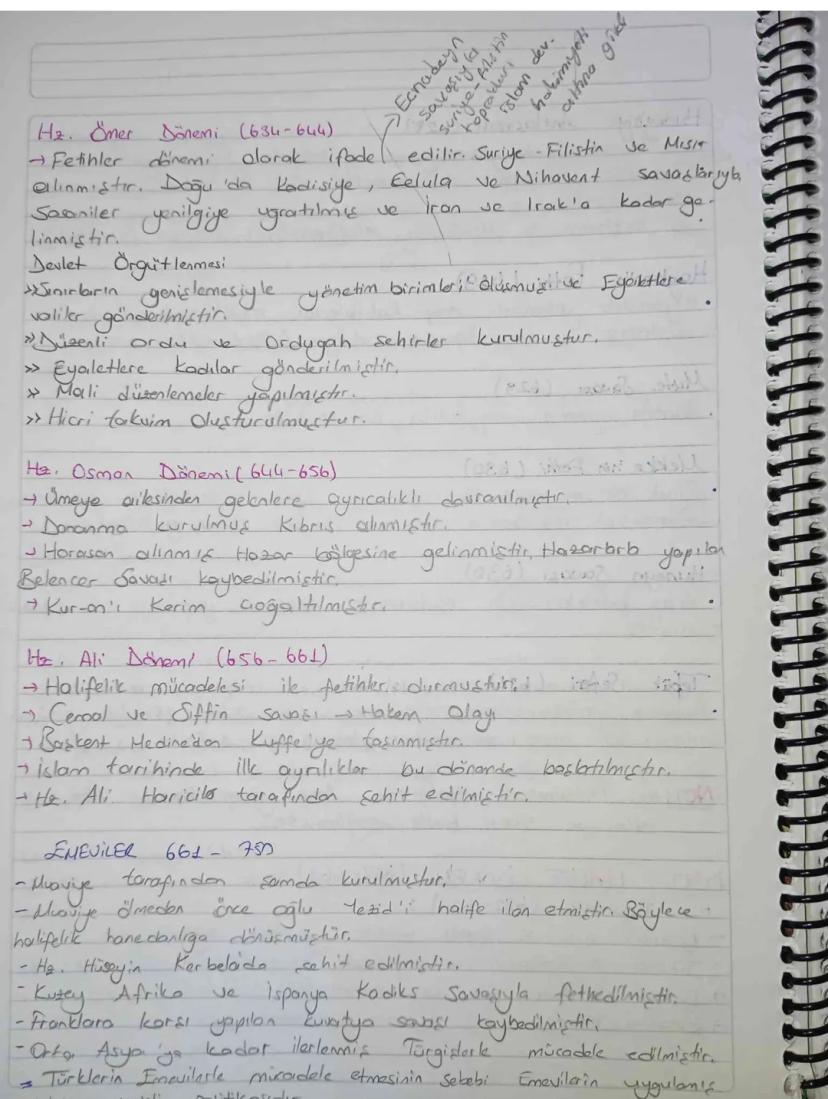 Ecnadeyn
savaşıyla
suriye-filistin
toprakları
islam dev.
hakimiyeti
altına girdi
Hz. Ömer Dönemi (634-644)
→ Fetihler dönemi olarak ifade edilir. Suriye-Filistin ve Mısır
alınmıştır. Doğu'da Kadisiye, Celula ve Nihavent savaşlarıyla
Sasaniler yenilgiye uğratılmış ve İran ve Irak'a kadar ge-
linmiştir.
Devlet Örgütlenmesi
» Sınırların genişlemesiyle yönetim birimleri oluşmuş ve Eyaletlere
valiler gönderilmiştir.
» Düzenli ordu ve Ordugah şehirler kurulmuştur.
» Eyaletlere kadılar gönderilmiştir.
» Mali düzenlemeler yapılmıştır.
» Hicri takvim oluşturulmuştur.
Hz. Osman Dönemi (644-656)
→ Ümeye ailesinden gelenlere ayrıcalıklı davranılmıştır.
→ Donanma kurulmuş Kıbrıs alınmıştır.
→ Horasan alınmış Hazar bölgesine gelinmiştir, Hazarlarla yapılan
Belencer Savaşı kaybedilmiştir.
→ Kur-an'ı Kerim çoğaltılmıştır.
Hz. Ali Dönemi (656-661)
→ Halifelik mücadelesi ile fetihler durmuştur.
→ Cemal ve Sıffin savaşı → Hakem Olayı
→ Başkent Medine'den Kuffe'ye taşınmıştır.
→ islam tarihinde ilk ayrılıklar bu dönemde başlatılmıştır.
→ Hz. Ali Hariciler tarafından şehit edilmiştir.
EMEVİLER 661 - 750
- Muaviye tarafından şamda kurulmuştur.
- Muaviye ölmeden önce oğlu Yezid'i halife ilan etmiştir. Böylece
halifelik hanedanlığa dönüşmüştür.
- Hz. Hüseyin Kerbelada şehit edilmiştir.
- Kuzey Afrika ve İspanya Kadiks Savaşıyla fethedilmiştir.
- Franklara karşı yapılan savaşı kaybedilmiştir.
- Orta Asya'ya kadar ilerlenmiş Türgişlerle mücadele edilmiştir.
= Türklerin Emevilerle mücadele etmesinin sebebi Emevilerin uygulamış